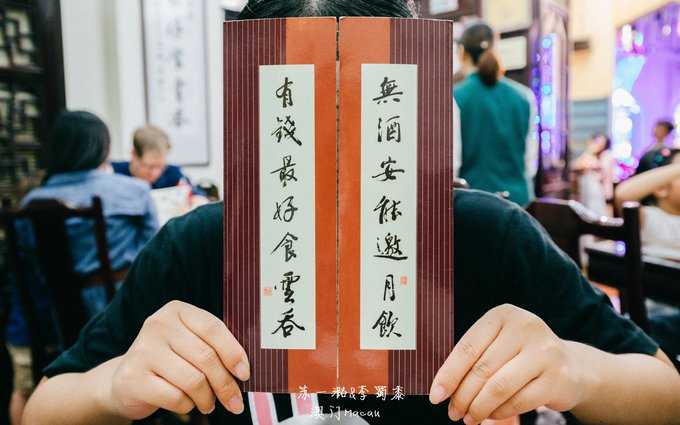 無酒安能邀月飲
有錢最好食雲吞
&李蜀黍
澳门Macau